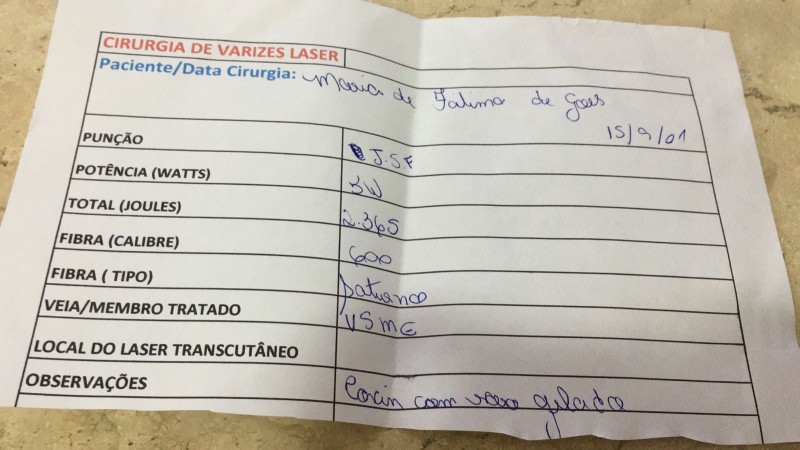 CIRURGIA DE VARIZES LASER
Paciente/Data Cirurgia: Maria de Fatima de Goes
15/9/01
PUNÇÃO J.SF
POTÊNCIA (WATTS) 3W
TOTAL (JOULES) 2.365
FIBRA (CALIBRE) 600
FIBRA ( TIPO)
VEIA/MEMBRO TRATADO VSME
LOCAL DO LASER TRANSCUTÂNEO
OBSERVAÇÕES com